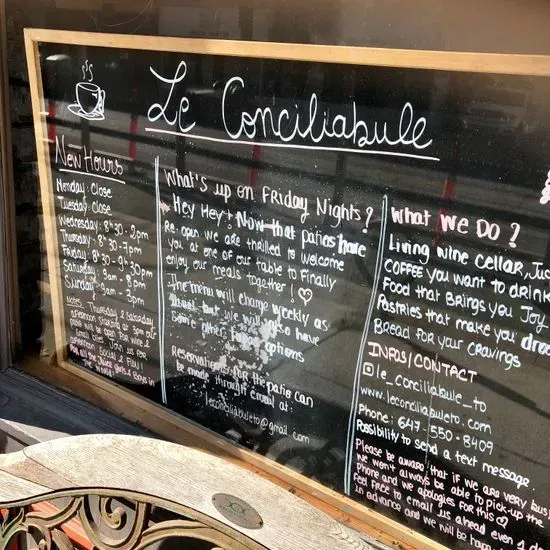 Le Conciliabule
New Hours
Monday: Close
Tuesday: Close
Wednesday: 8:30-2pm
Thursday: 8:30-7pm
Friday: 8:30-9:30pm
Saturday: 9am-8pm
Sunday: 9am-3pm
Notes: Thursday & Saturday
afternoon starting at 3pm our
patio will be open for wine &
small bites. Join us for
afternoon Social & Play!
For all the Juice, girls & boys in
the World!
What's up on Friday Nights?
Hey Hey! Now that patios have
re-open we are thrilled to welcome
you at one of our table to finally
enjoy our meals together!
The menu will change weekly as
usual but we will also have
some others options
Reservations for the patio can
be made through email at:
leconciliabuleto@gmail.com
What We Do?
Living wine cellar,
COFFEE you want to drink
Food that Brings you Joy
Pastries that make you
Bread for your cravings
INFOS/CONTACT
le_conciliabule_to
www.leconciliabuleto.com
Phone: 647-550-8409
Possibility to send a text message
Please be aware that if we are very busy
we won't always be able to pick-up the
phone and we apologies for this
Feel free to email us ahead even 1
in advance and we will be